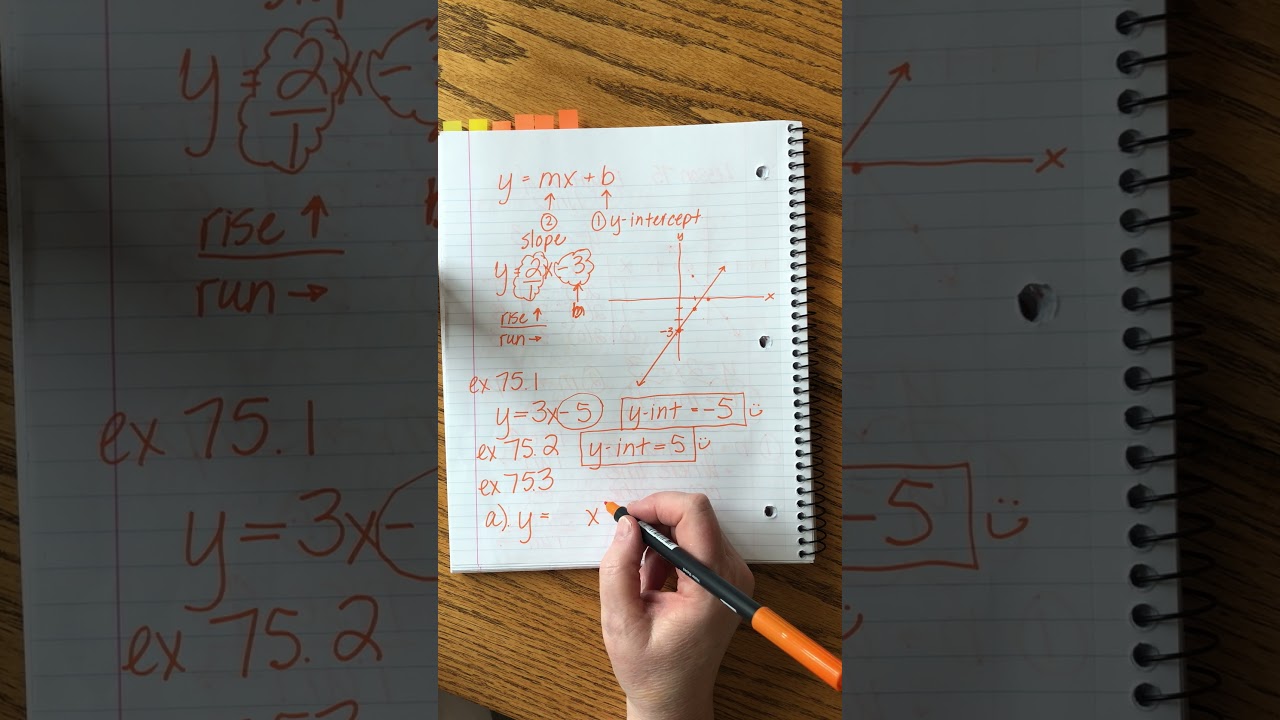 y = mx + b
② ① y-intercept
slope
y = 2/1 x - 3
b
rise ↑
run →
y
x
-3
ex 75.1
y = 3x - 5 y-int = -5
ex 75.2 y-int = 5
ex 75.3
a). y = x